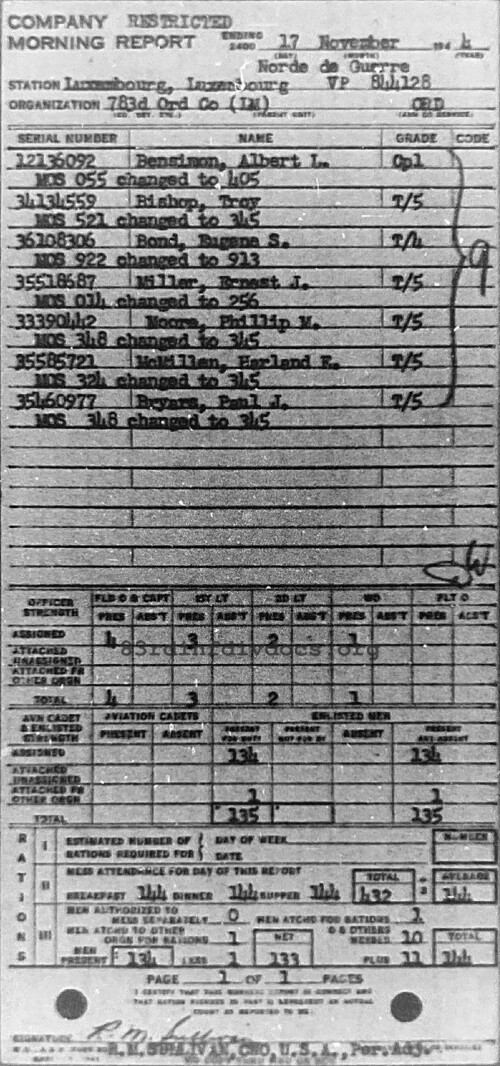 COMPANY RESTRICTED
MORNING REPORT ENDING 2400 17 November 194 4
(DAY) (MONTH) (YEAR)
Norde de Guerre
STATION Luxembourg, Luxembourg VP 844128
ORGANIZATION 783d Ord Co (LM) ORD
SERIAL NUMBER NAME GRADE CODE
12136092 Bensimon, Albert L. Cpl
MOS 055 changed to 405
34134559 Bishop, Troy T/5
MOS 521 changed to 345
36108306 Bond, Eugene S. T/4
MOS 922 changed to 913
35518687 Miller, Ernest J. T/5
MOS 014 changed to 256
33390442 Moore, Phillip M. T/5
MOS 348 changed to 345
35585721 McMillen, Harland E. T/5
MOS 324 changed to 345
35460977 Bryars, Paul J. T/5
MOS 348 changed to 345
9
OFFICER STRENGTH FLD O & CAPT 1ST LT 2D LT WO FLT O
PRES ABS'T PRES ABS'T PRES ABS'T PRES ABS'T PRES ABS'T
ASSIGNED 4 3 2 1
83rdinfdivdocs.org
ATTACHED UNASSIGNED
ATTACHED FR OTHER ORGN
TOTAL 4 3 2 1
AVN CADET & ENLISTED STRENGTH AVIATION CADETS ENLISTED MEN
PRESENT ABSENT PRESENT FOR DUTY PRESENT NOT FOR DY ABSENT PRESENT AND ABSENT
ASSIGNED 134 134
ATTACHED UNASSIGNED
ATTACHED FR OTHER ORGN 1 1
TOTAL 135 135
RATIONS
I ESTIMATED NUMBER OF RATIONS REQUIRED FOR { DAY OF WEEK NUMBER
DATE
II MESS ATTENDANCE FOR DAY OF THIS REPORT TOTAL AVERAGE
BREAKFAST 144 DINNER 144 SUPPER 144 432 ÷ 3 144
III MEN AUTHORIZED TO MESS SEPARATELY 0 MEN ATCHD FOR RATIONS 1
MEN ATCHD TO OTHER ORGN FOR RATIONS 1 NET O & OTHERS MESSED 10 TOTAL
MEN PRESENT 134 LESS 1 133 PLUS 11 144
PAGE 1 OF 1 PAGES
I CERTIFY THAT THIS MORNING REPORT IS CORRECT AND
THAT RATION FIGURES IN PART II REPRESENT AN ACTUAL
COUNT AS REPORTED TO ME.
SIGNATURE R. M. Sullivan
R.M. SULLIVAN, CWO, U.S.A., Per. Adj.